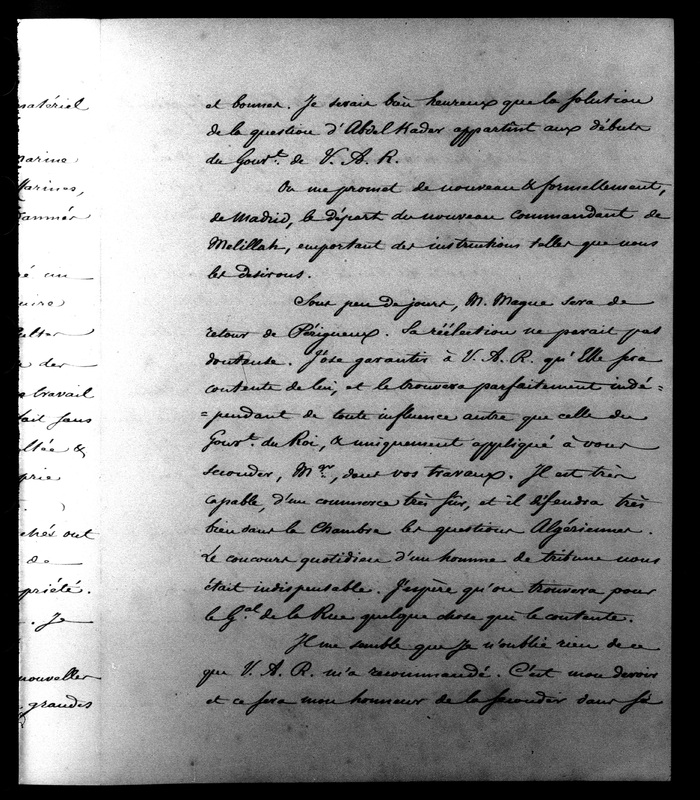 matériel
marine
Marines,
d'année
ré un
uire
a des
travail
fait sans
ltée &
prie
chés ont
de
priété.
. Je
nouvelles
grandes
et bonnes. Je serais bien heureux que la solution
de la question d'Abdel Kader appartînt aux débuts
du Gouvt. de V. A. R.
On me promet de nouveau & formellement,
de Madrid, le départ du nouveau commandant de
Melillah, emportant des instructions telles que nous
les désirons.
Sous peu de jours, M. Magne sera de
retour de Périgueux. Sa réélection ne parait pas
douteuse. J'ose garantir à V. A. R. qu'Elle sera
contente de lui, et le trouvera parfaitement indé=
=pendant de toute influence autre que celle du
Gouvt. du Roi, & uniquement appliqué à vous
seconder, Mgr., dans vos travaux. Il est très
capable, d'un commerce très sûr, et il défendra très
bien dans la Chambre les questions Algériennes.
Le concours quotidien d'un homme de tribune nous
était indispensable. J'espère qu'on trouvera pour
le Gal. de la Rue quelque chose qui le contente.
Il me semble que je n'oublie rien de ce
que V. A. R. m'a recommandé. C'est mon devoir
et ce sera mon honneur de la seconder dans sa